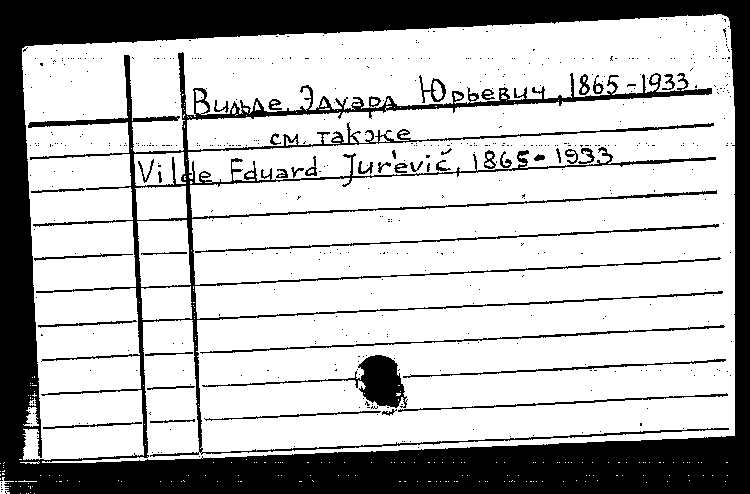 Вильде, Эдуард Юрьевич, 1865-1933.
см. также
Vilde, Eduard Jur'evič, 1865-1933